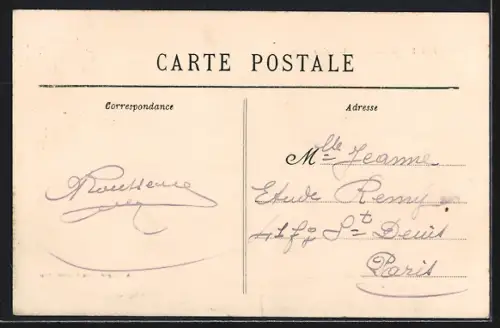 CARTE POSTALE
Correspondance
Adresse
Mlle Jeanne
Etude Remy
fg St Denis
Paris